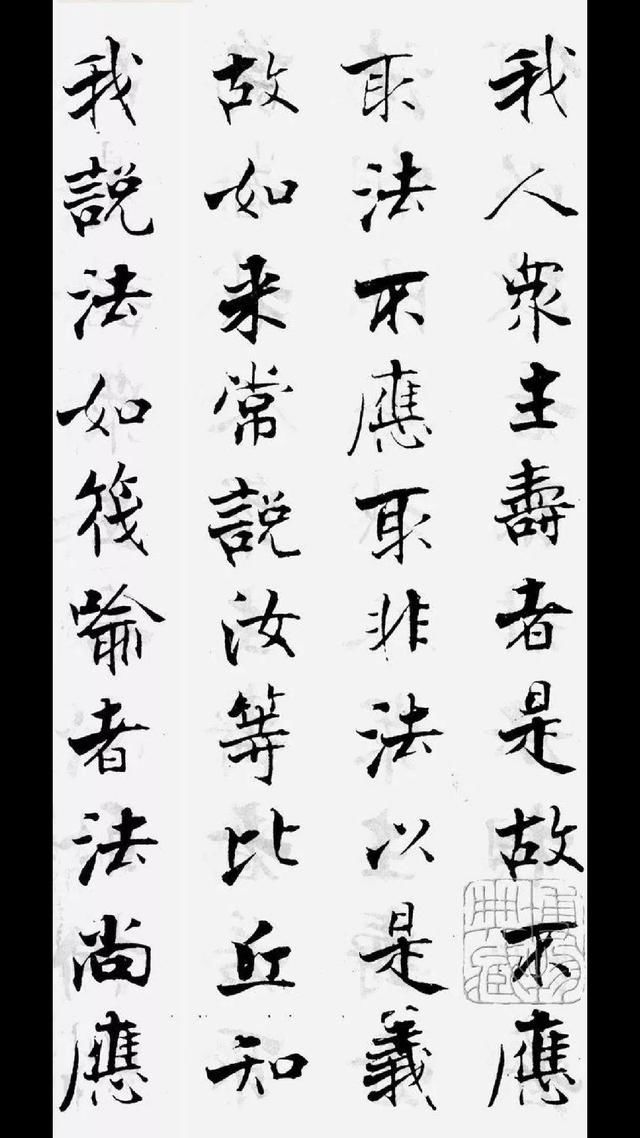 我人衆主壽者是故不應
取法不應取非法以是義
故如来常説汝等比丘知
我説法如筏喻者法尚應